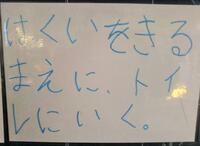 はくいをきる
まえに、トイ
レにいく。